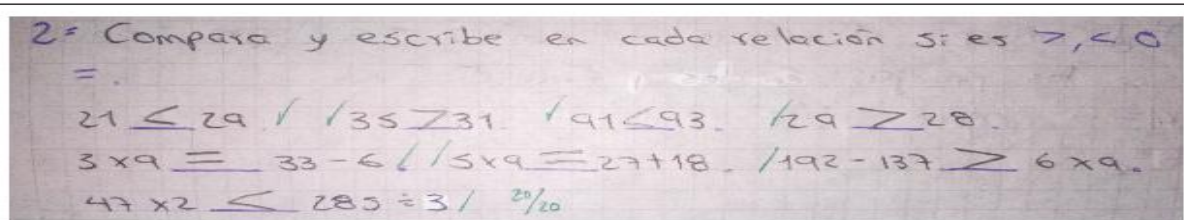 2= Compara y escribe en cada relación si es >, < o
=.
21 < 29 / /35 > 31. / 91 < 93. /29 > 28.
3 x 9 = 33 - 6 / /5 x 9 = 27 + 18. /192 - 137 > 6 x 9.
47 x 2 < 285 ÷ 3 / 20/20